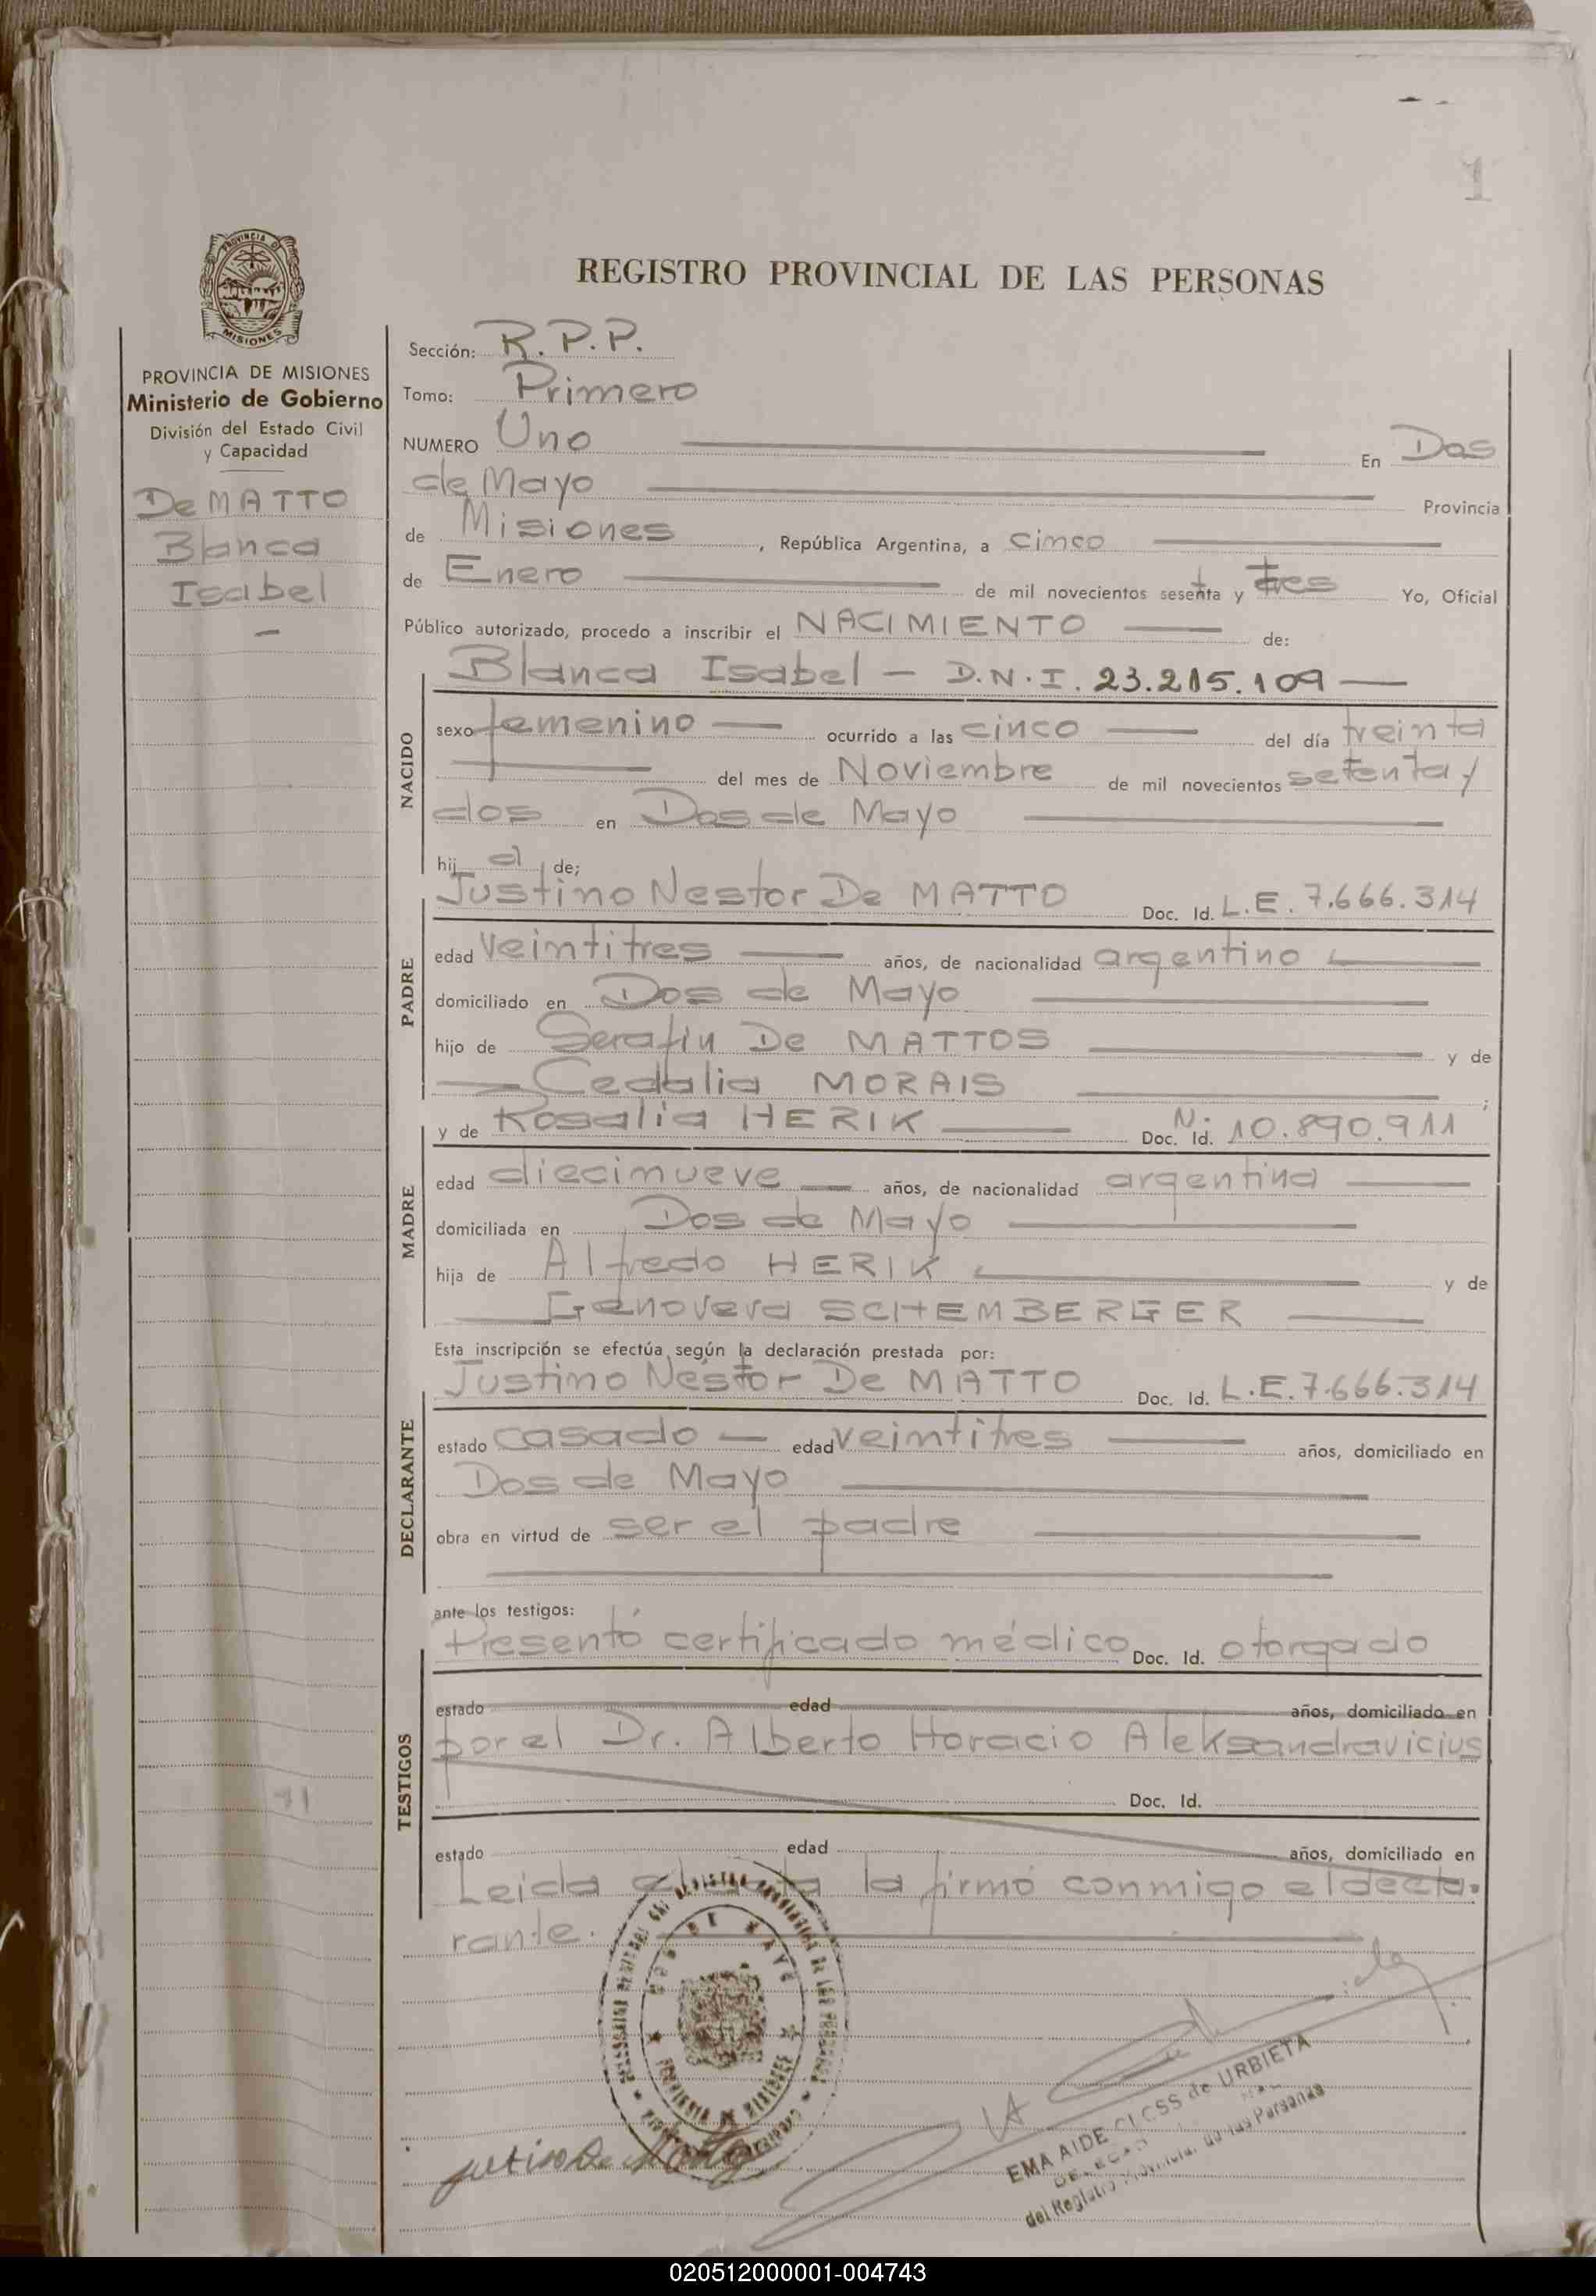 1
PROVINCIA DE
MISIONES
PROVINCIA DE MISIONES
Ministerio de Gobierno
División del Estado Civil
y Capacidad
De MATTO
Blanca
Isabel
REGISTRO PROVINCIAL DE LAS PERSONAS
Sección: R.P.P.
Tomo: Primero
NUMERO Uno En Dos
de Mayo Provincia
de Misiones, República Argentina, a cinco
de Enero de mil novecientos sesenta y tres Yo, Oficial
Público autorizado, procedo a inscribir el NACIMIENTO de:
Blanca Isabel - D.N.I. 23.215.109
NACIDO
sexo femenino ocurrido a las cinco del día treinta
del mes de Noviembre de mil novecientos setenta y
dos en Dos de Mayo
hij a de;
PADRE
Justino Nestor De MATTO Doc. Id. L.E. 7.666.314
edad veintitres años, de nacionalidad argentino
domiciliado en Dos de Mayo
hijo de Serafin De MATTOS y de
Cedalia MORAIS ;
MADRE
y de Rosalia HERIK Doc. Id. N: 10.890.911
edad diecinueve años, de nacionalidad argentina
domiciliada en Dos de Mayo
hija de Alfredo HERIK y de
Genoveva SCHEMBERGER
Esta inscripción se efectúa según la declaración prestada por:
DECLARANTE
Justino Nestor De MATTO Doc. Id. L.E. 7.666.314
estado casado edad veintitres años, domiciliado en
Dos de Mayo
obra en virtud de ser el padre
ante los testigos:
TESTIGOS
Presentó certificado médico Doc. Id. otorgado
estado edad años, domiciliado en
por el Dr. Alberto Horacio Aleksandravicius
Doc. Id.
estado edad años, domiciliado en
Leida el acta la firmó conmigo el decla-
rante.
DOS DE MAYO
EMA AIDE CLOSS de URBIETA
del Registro Provincial de las Personas
020512000001-004743